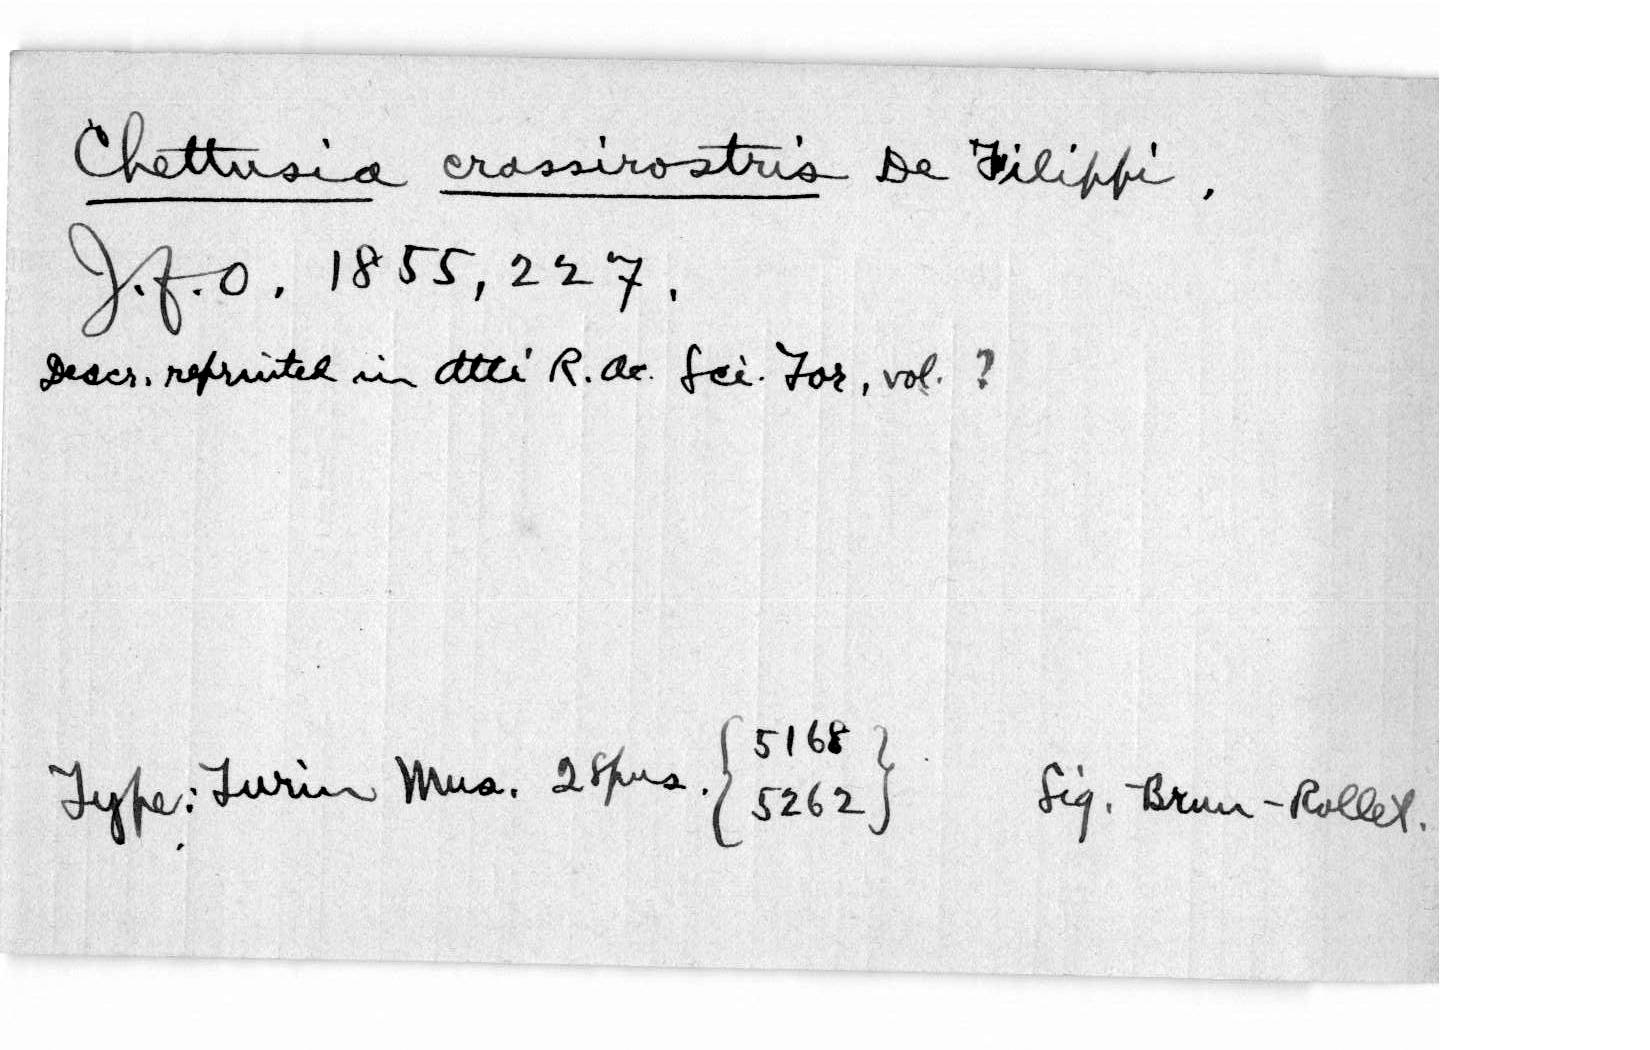 Chettusia crassirostris De Filippi,
J.f.O. 1855, 227.
Descr. reprinted in Atti R. Ac. Sci. Tor, vol. ?
Type: Turin Mus. 2 Spns. { 5168 5262 } Sig. Brun-Rollet.